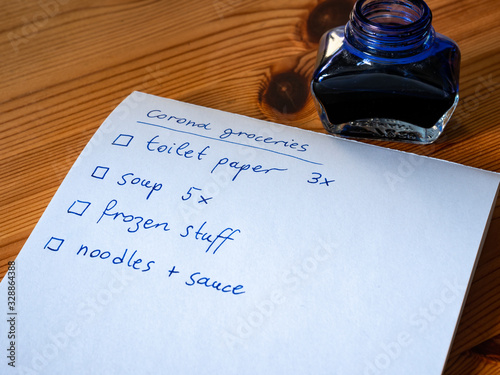 Corona groceries
☐ toilet paper 3x
☐ soup 5x
☐ frozen stuff
☐ noodles + sauce
Adobe Stock | #328864388